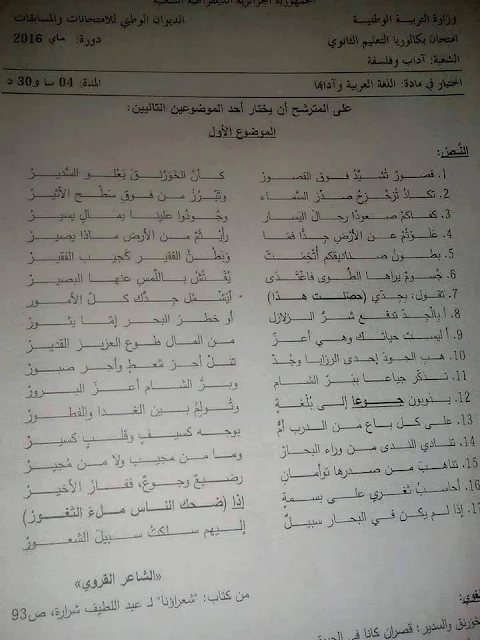 الجمهورية الجزائرية الديمقراطية الشعبية
وزارة التربية الوطنية الديوان الوطني للامتحانات والمسابقات
امتحان بكالوريا التعليم الثانوي دورة: ماي 2016
الشعبة: آداب وفلسفة
اختبار في مادة: اللغة العربية وآدابها المدة: 04 سا و30 د
على المترشح أن يختار أحد الموضوعين التاليين:
الموضوع الأول
النّص:
1. قصورٌ تُشيَّدُ فوق القصور كأنّ الخَوَرْنَقَ يَعْلو السَّديرْ
2. تكادُ تُزحْزِحُ صدْرَ السّماء وتَبْرُزُ من فوق سَطْحِ الأثيرْ
3. كفاكمْ صعودًا رجالَ اليَسار وجُودُوا علينا بمالٍ يسيرْ
4. عَلَوْتُمْ عن الأرضِ جدًّا فما رأيتُمْ من الأرضِ ماذا يصيرْ
5. بطونُ صناديقكم أُتْخِمَتْ وبَطْنُ الفقيرِ كَجيبِ الفقيرْ
6. جُسومٌ براها الطَّوى فاغْتَدَى يُفَتِّشُ باللّمسِ عنها البصيرْ
7. تقول: بجِدّي (حصّلت هذا) أيَشْمَلُ جِدُّكَ كلّ الأمورْ
8. أبالجِدّ تدفع شرَّ الزلازل أو خطرَ البحر إمّا يثورْ
9. أليست حياتك وهي أعزّ من المال طوع العزيز القديرْ
10. هبِ الجودَ إحدى الرزايا وجُدْ تنلْ أجرَ مُعطٍ وأجر صبورْ
11. تذكّر جياعا ببَرِّ الشام وبرُّ الشام أعزّ البرورْ
12. يذوبون جوعا إلى بُلْغةٍ وتُولِمُ بين الغدا والفطورْ
13. على كل باعٍ من الدرب أمٌّ بوجه كسيفٍ وقلبٍ كسيرْ
14. تنادي الندى من وراء البحار وما من مجيب ولا من مُجيرْ
15. تناهبَ من صدرها توأمانِ رضيعٌ وجوعٌ، ففاز الأخيرْ
16. أحاسبُ ثغري على بسمةٍ إذا (ضحك الناس ملءَ الثغور)
17. إذا لم يكن في البحار سبيلٌ إليهم سلكتُ سبيلَ الشعورْ
«الشاعر القروي»
من كتاب: "شعراؤنا" لـ عبد اللطيف شرارة، ص93
خورنق والسدير: قصران كانا في